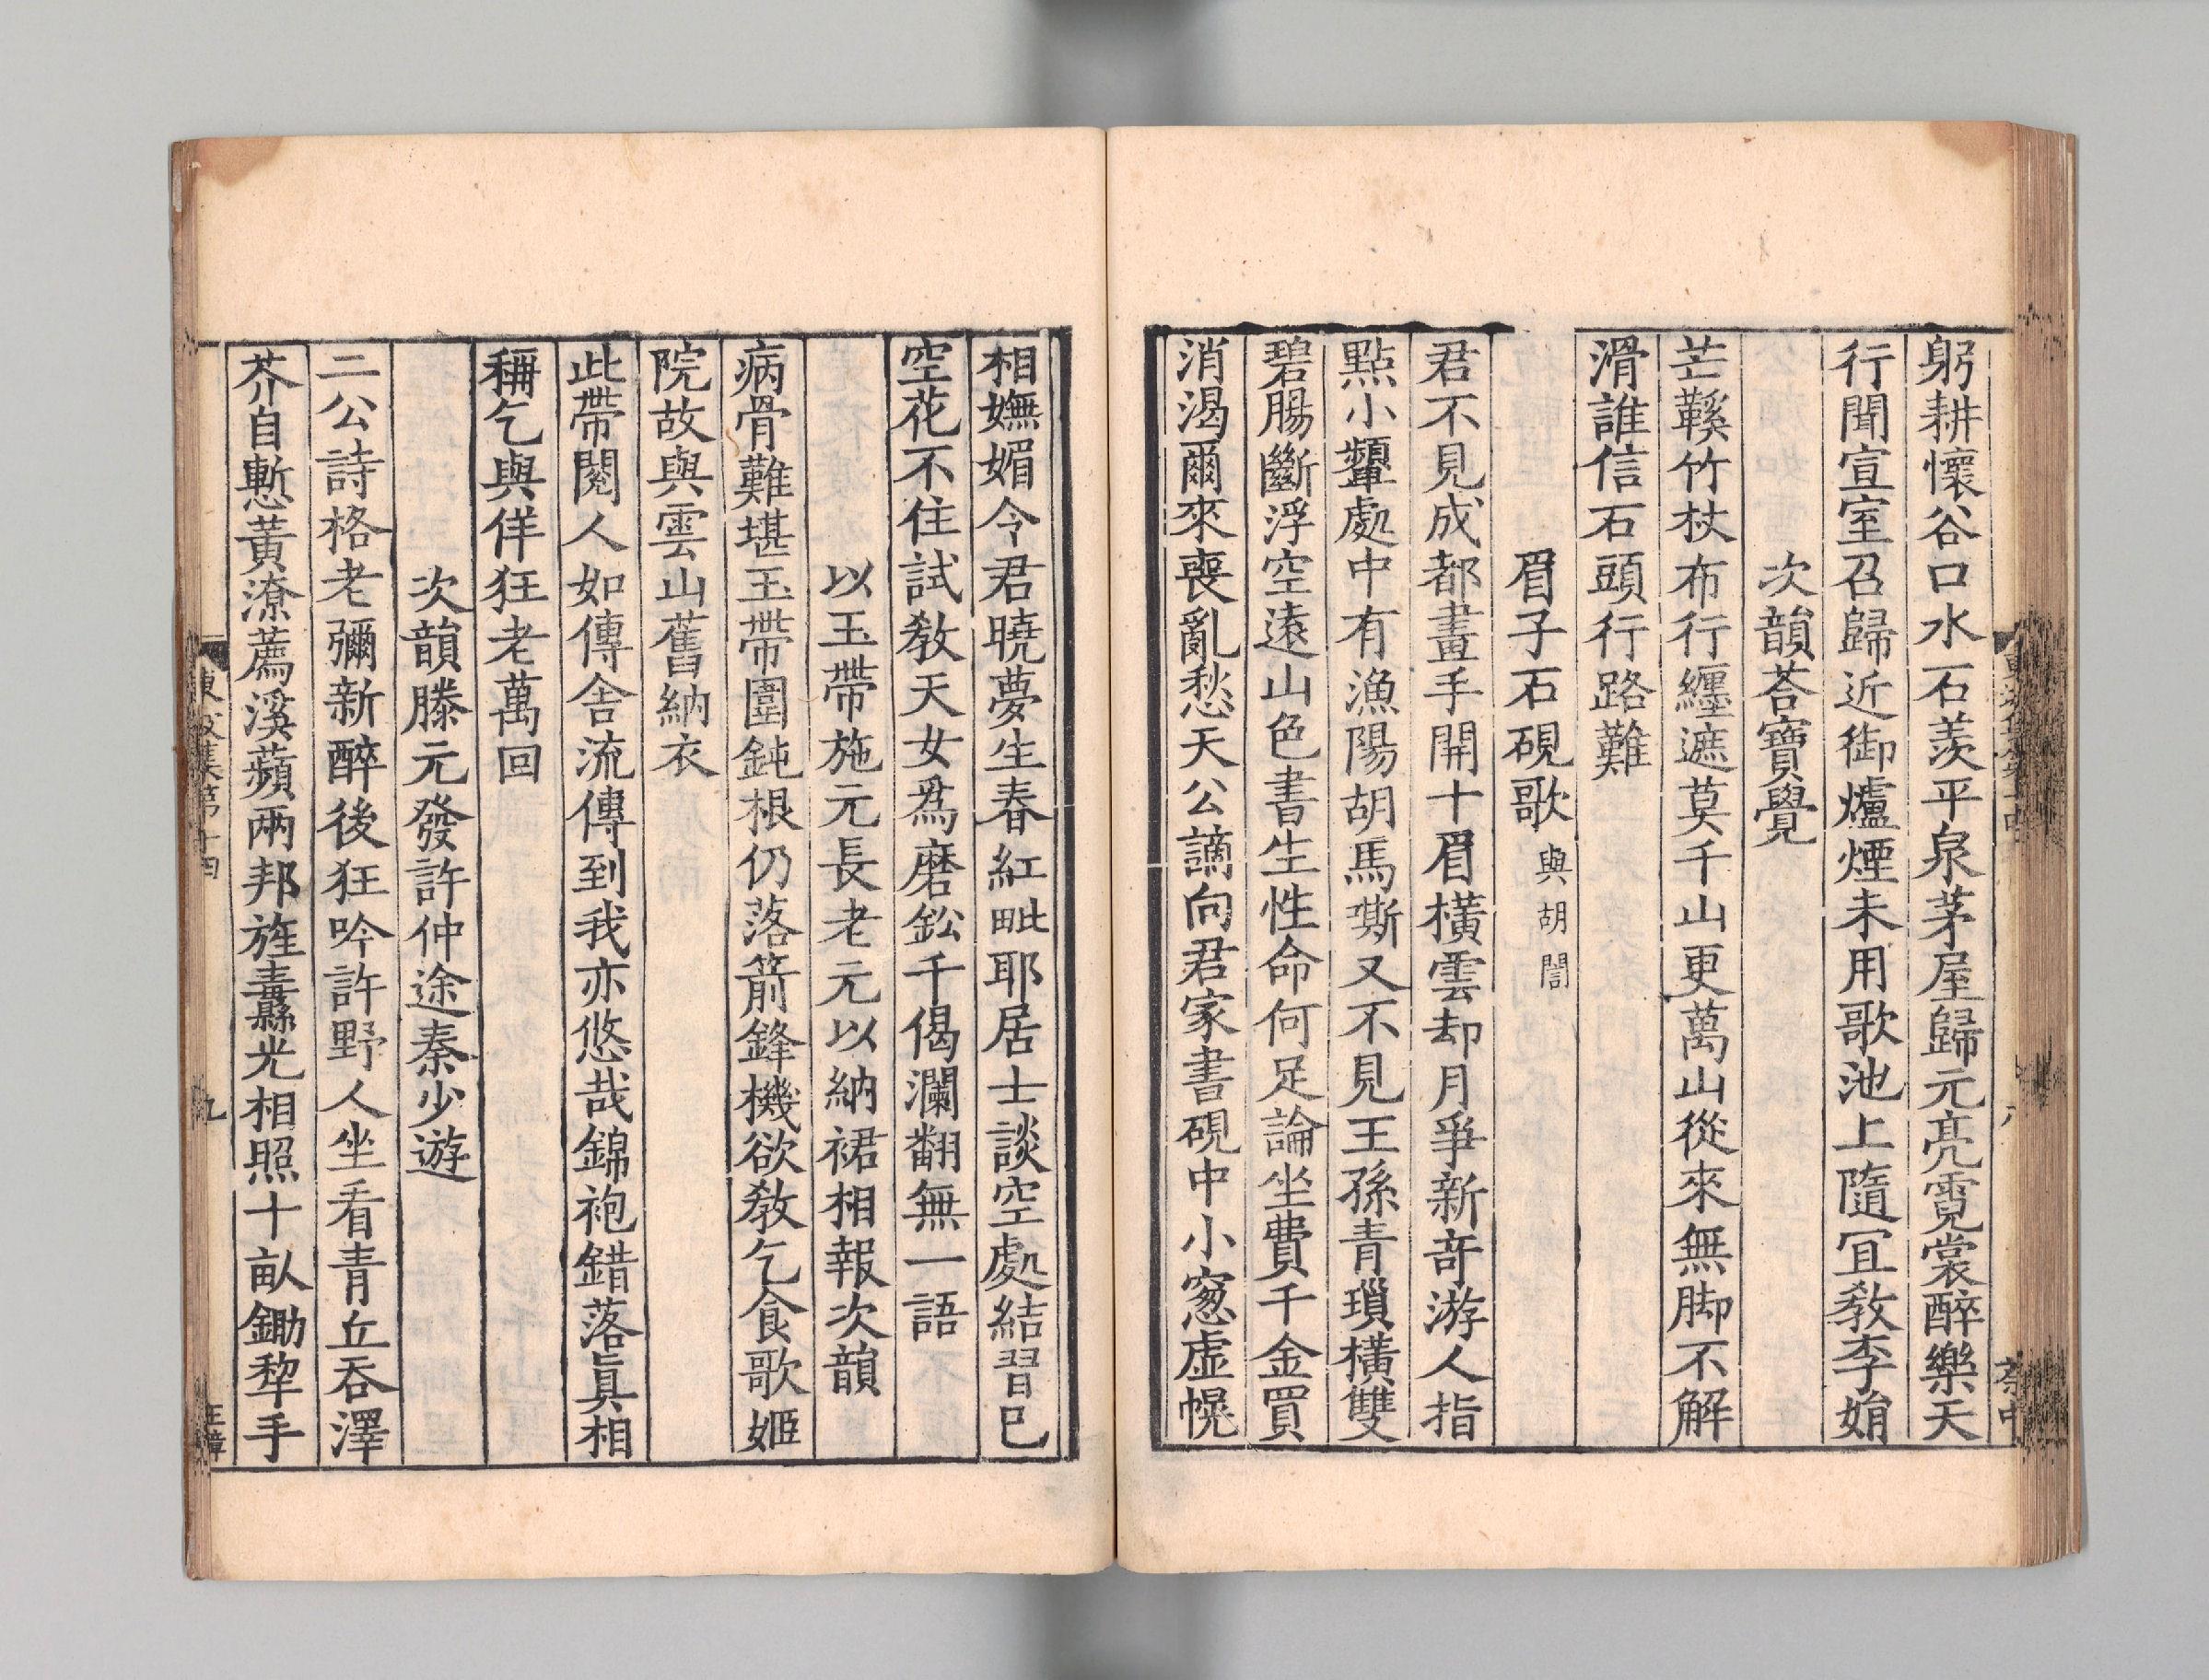 躬耕懷谷口水石羨平泉茅屋歸元亮霓裳醉樂天
行聞宣室召歸近御爐煙未用歌池上隨冝敎李娟
次韻荅寶覺
芒鞵竹杖布行纏遮莫千山更萬山從來無脚不解
滑誰信石頭行路難
眉子石硯歌與胡誾
君不見成都畫手開十眉橫雲却月爭新奇游人指
點小顰處中有漁陽胡馬嘶又不見王孫青瑣橫雙
碧腸斷浮空遠山色書生性命何足論坐費千金買
消渴爾來喪亂愁天公謫向君家書硯中小窻虛幌
相嫵媚令君曉夢生春紅毗耶居士談空處結習已
空花不住試敎天女爲磨鈆千偈瀾翻無一語
以玉帶施元長老元以納裙相報次韻
病骨難堪玉帶圍鈍根仍落箭鋒機欲敎乞食歌姬
院故與雲山舊納衣
此帶閱人如傳舍流傳到我亦悠哉錦袍錯落眞相
稱乞與佯狂老萬回
次韻滕元發許仲途秦少遊
二公詩格老彌新醉後狂吟許野人坐看青丘吞澤
芥自慙黃潦薦溪蘋兩邦旌纛光相照十畝鋤犂手
東坡集第十四
九